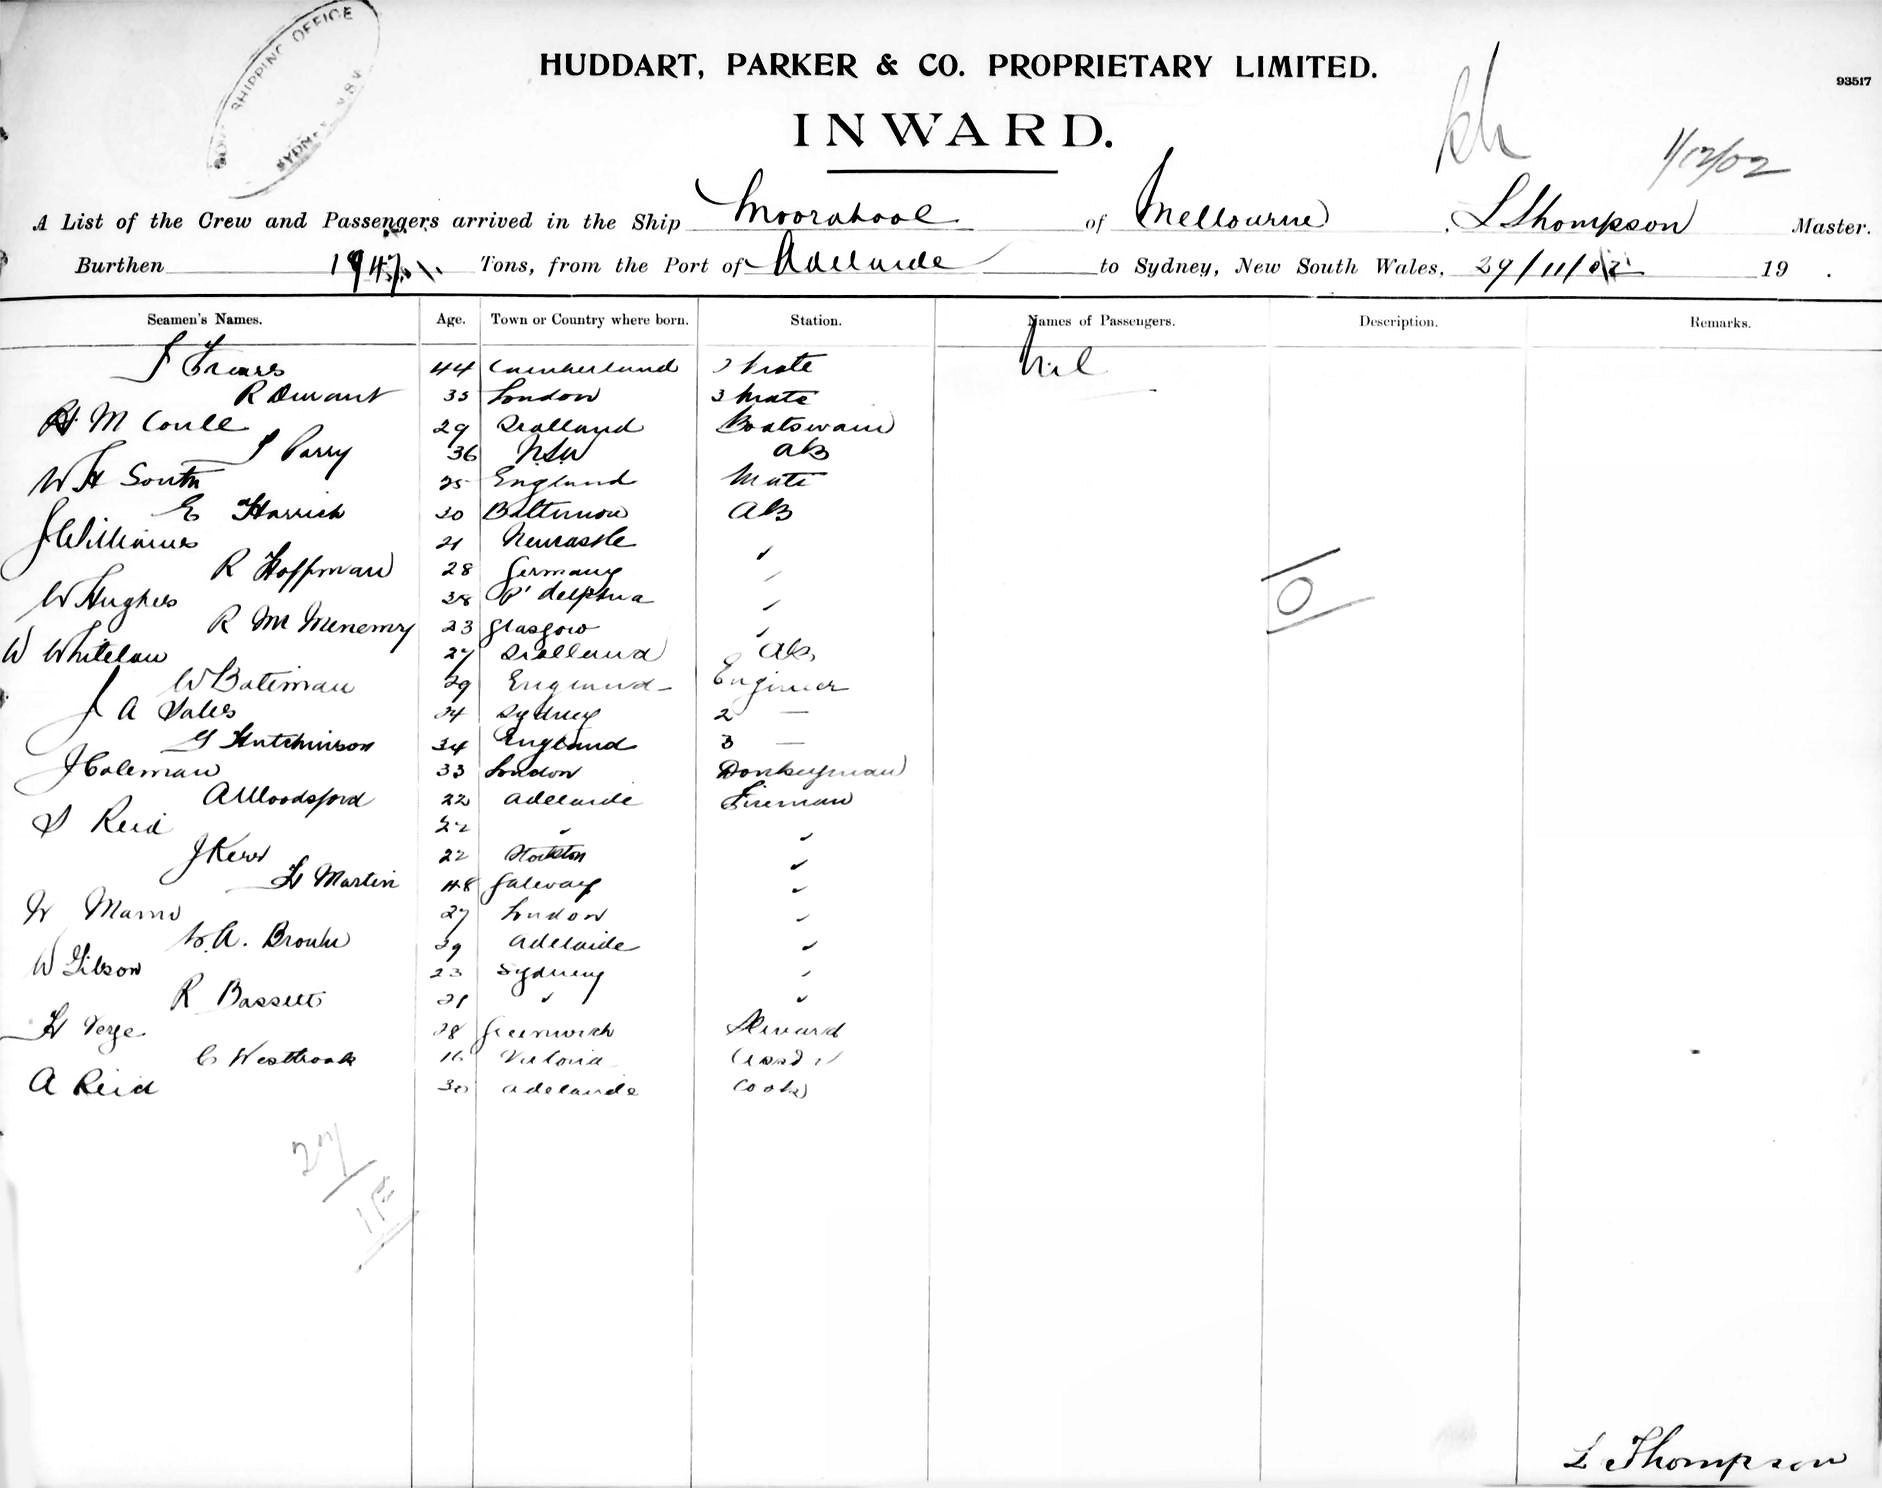 SHIPPING OFFICE
SYDNEY N.S.W.
HUDDART, PARKER & CO. PROPRIETARY LIMITED.
93517
INWARD.
1/12/02
A List of the Crew and Passengers arrived in the Ship Moorabool of Melbourne, L Thompson Master.
Burthen 1947 Tons, from the Port of Adelaide to Sydney, New South Wales, 29/11/02 19 .
Seamen's Names. Age. Town or Country where born. Station. Names of Passengers. Description. Remarks.
J 44 Cumberland 2 Mate Nil
R Durant 33 London 3 Mate
M Coull 29 Scotland Boatswain
J Parry 36 NSW AB
W H South 25 England Mate
E Harrich 30 Baltimore AB
J Williams 21 Newcastle ✓
R Hoffman 28 Germany ✓
W Hughes 38 P'delphia ✓
R Mc Menemy 23 Glasgow ✓
W Whitelaw 27 Scotland AB
W Bateman 29 England Engineer
J A Vales 24 Sydney 2 —
G Hutchinson 34 England 3 —
J Coleman 33 London Donkeyman
A Woodsford 22 Adelaide Fireman
Reid 22 ✓ ✓
J Kerr 22 Stockton ✓
H Martin 48 Galway ✓
27 London ✓
W.A. Browne 29 Adelaide ✓
W Gibson 23 Sydney ✓
R Bassett 21 ✓ ✓
H Verge 28 Greenwich Steward
C Westbrook 16 Victoria Assd
A Reid 30 Adelaide Cook
27
L Thompson